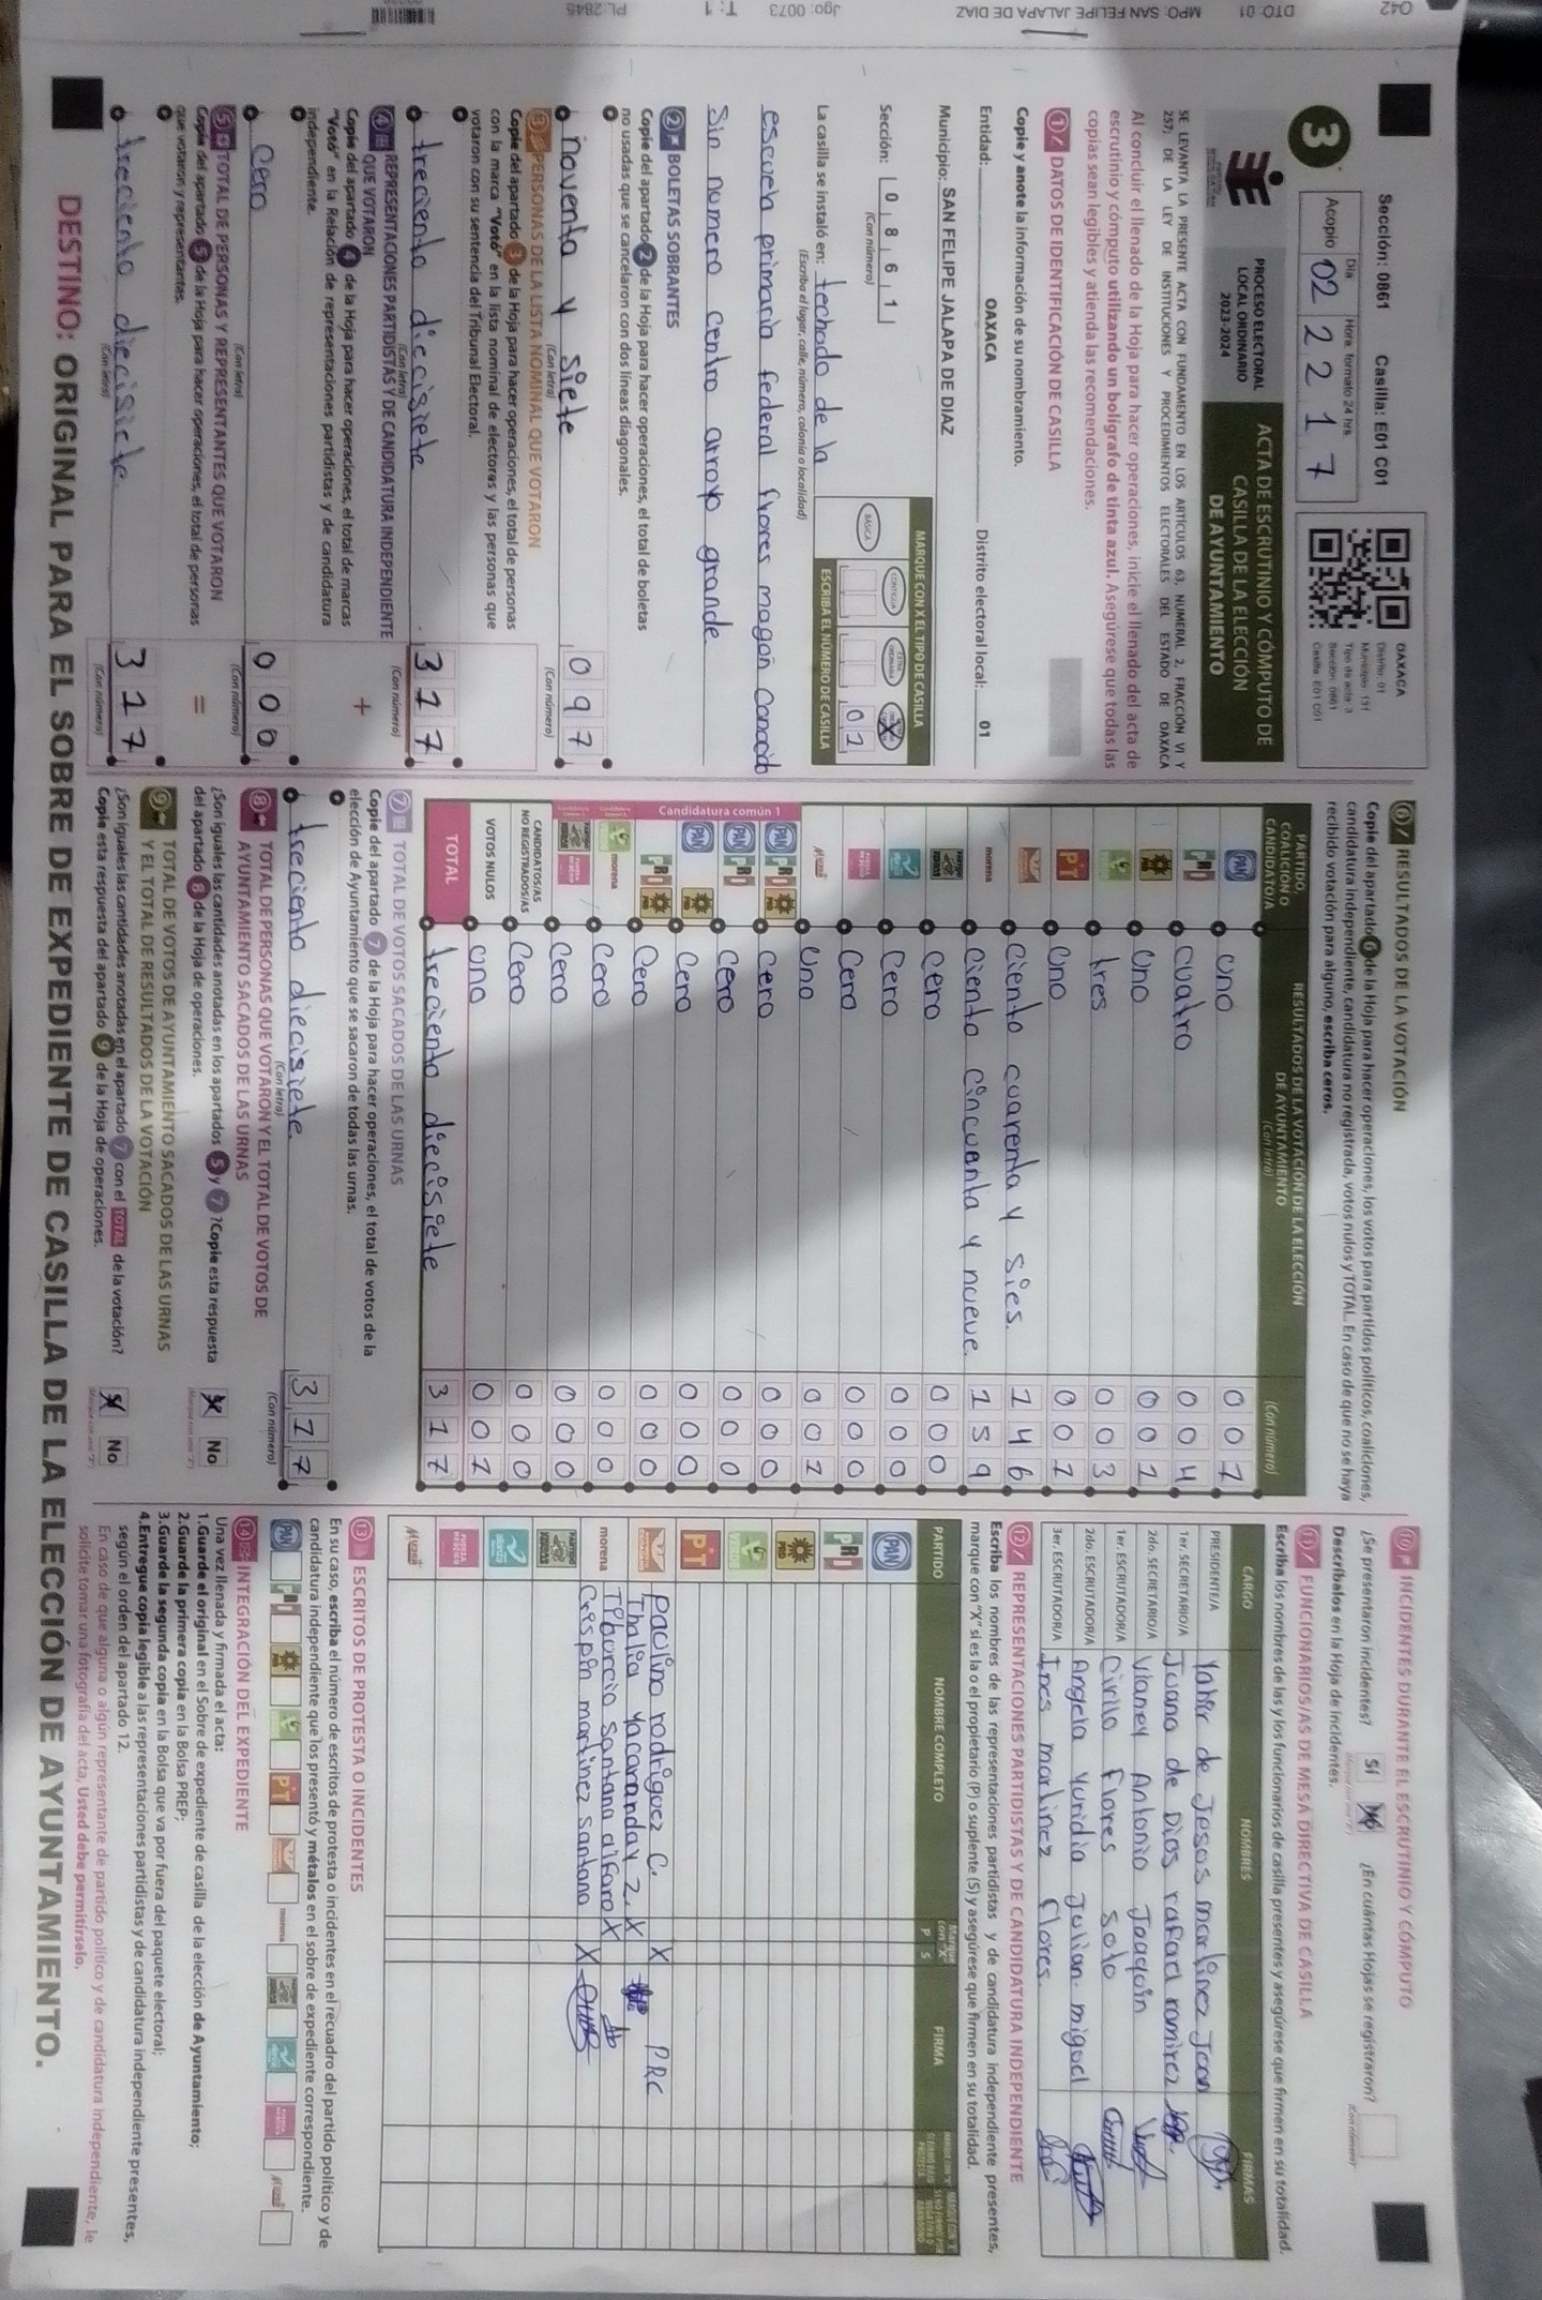 042
DTO: 01
MPO: SAN FELIPE JALAPA DE DIAZ
Jgo: 0073
T: 1
PL: 2845
Sección: 0861 Casilla: E01 C01
OAXACA
Distrito: 01
Municipio: 191
Tipo de acta: 3
Sección: 0861
Casilla: E01 C01
3
Día
Hora formato 24 hrs.
Acopio 02 22 17
PROCESO ELECTORAL
LOCAL ORDINARIO
2023-2024
ACTA DE ESCRUTINIO Y CÓMPUTO DE
CASILLA DE LA ELECCIÓN
DE AYUNTAMIENTO
SE LEVANTA LA PRESENTE ACTA CON FUNDAMENTO EN LOS ARTÍCULOS 63, NUMERAL 2, FRACCIÓN VI Y
257; DE LA LEY DE INSTITUCIONES Y PROCEDIMIENTOS ELECTORALES DEL ESTADO DE OAXACA
Al concluir el llenado de la Hoja para hacer operaciones, inicie el llenado del acta de
escrutinio y cómputo utilizando un bolígrafo de tinta azul. Asegúrese que todas las
copias sean legibles y atienda las recomendaciones.
1 DATOS DE IDENTIFICACIÓN DE CASILLA
Copie y anote la información de su nombramiento.
Entidad: OAXACA Distrito electoral local: 01
Municipio: SAN FELIPE JALAPA DE DIAZ
MARQUE CON X EL TIPO DE CASILLA
Sección: 0 8 6 1
(Con número)
BÁSICA
CONTIGUA
X
02
ESCRIBA EL NÚMERO DE CASILLA
La casilla se instaló en: techado de la
(Escriba el lugar, calle, número, colonia o localidad)
escuela primaria federal flores magon Conocido
Sin numero centro arroyo grande
2 BOLETAS SOBRANTES
Copie del apartado 2 de la Hoja para hacer operaciones, el total de boletas
no usadas que se cancelaron con dos líneas diagonales.
noventa y siete 0 9 7
(Con letra) (Con número)
3 PERSONAS DE LA LISTA NOMINAL QUE VOTARON
Copie del apartado 3 de la Hoja para hacer operaciones, el total de personas
con la marca "Votó" en la lista nominal de electores y las personas que
votaron con su sentencia del Tribunal Electoral.
treciento diecisiete 3 1 7
(Con letra) (Con número)
4 REPRESENTACIONES PARTIDISTAS Y DE CANDIDATURA INDEPENDIENTE
QUE VOTARON
Copie del apartado 4 de la Hoja para hacer operaciones, el total de marcas
"Votó" en la Relación de representaciones partidistas y de candidatura
independiente.
+
Cero 0 0 0
(Con letra) (Con número)
5 TOTAL DE PERSONAS Y REPRESENTANTES QUE VOTARON
Copie del apartado 5 de la Hoja para hacer operaciones, el total de personas
que votaron y representantes.
=
treciento diecisiete 3 1 7
(Con letra) (Con número)
6 RESULTADOS DE LA VOTACIÓN
Copie del apartado 6 de la Hoja para hacer operaciones, los votos para partidos políticos, coaliciones,
candidatura independiente, candidatura no registrada, votos nulos y TOTAL. En caso de que no se haya
recibido votación para alguno, escriba ceros.
PARTIDO,
COALICIÓN O
CANDIDATO/A
RESULTADOS DE LA VOTACIÓN DE LA ELECCIÓN
DE AYUNTAMIENTO
(Con letra)
(Con número)
PAN uno 0 0 1
PRI cuatro 0 0 4
PRD uno 0 0 1
VERDE tres 0 0 3
PT uno 0 0 1
Ciento cuarenta y sies. 1 4 6
morena ciento cincuenta y nueve. 1 5 9
cero 0 0 0
Cero 0 0 0
Cero 0 0 0
uno 0 0 1
Candidatura común 1
PAN PRI PRD cero 0 0 0
PAN PRI cero 0 0 0
PAN PRD Cero 0 0 0
PRI PRD Cero 0 0 0
morena Cero 0 0 0
Cero 0 0 0
CANDIDATOS/AS
NO REGISTRADOS/AS Cero 0 0 0
VOTOS NULOS uno 0 0 1
TOTAL treciento diecisiete 3 1 7
7 TOTAL DE VOTOS SACADOS DE LAS URNAS
Copie del apartado 7 de la Hoja para hacer operaciones, el total de votos de la
elección de Ayuntamiento que se sacaron de todas las urnas.
treciento diecisiete. 3 1 7
(Con letra) (Con número)
8 TOTAL DE PERSONAS QUE VOTARON Y EL TOTAL DE VOTOS DE
AYUNTAMIENTO SACADOS DE LAS URNAS
¿Son iguales las cantidades anotadas en los apartados 5 y 7 ? Copie esta respuesta
del apartado 8 de la Hoja de operaciones.
X No
9 TOTAL DE VOTOS DE AYUNTAMIENTO SACADOS DE LAS URNAS
Y EL TOTAL DE RESULTADOS DE LA VOTACIÓN
¿Son iguales las cantidades anotadas en el apartado 7 con el TOTAL de la votación?
Copie esta respuesta del apartado 9 de la Hoja de operaciones.
X No
10 INCIDENTES DURANTE EL ESCRUTINIO Y CÓMPUTO
¿Se presentaron incidentes? SÍ No ¿En cuántas Hojas se registraron?
(Con número)
Descríbalos en la Hoja de incidentes.
11 FUNCIONARIOS/AS DE MESA DIRECTIVA DE CASILLA
Escriba los nombres de las y los funcionarios de casilla presentes y asegúrese que firmen en su totalidad.
CARGO NOMBRES FIRMAS
PRESIDENTE/A Yahir de Jesus martinez Jean
1er. SECRETARIO/A Juana de Dios rafael ramirez
2do. SECRETARIO/A Vianey Antonio Joaquin
1er. ESCRUTADOR/A Cirilo flores soto
2do. ESCRUTADOR/A Angela Yuridia Julian miguel
3er. ESCRUTADOR/A Ines martinez flores
12 REPRESENTACIONES PARTIDISTAS Y DE CANDIDATURA INDEPENDIENTE
Escriba los nombres de las representaciones partidistas y de candidatura independiente presentes,
marque con "X" si es la o el propietario (P) o suplente (S) y asegúrese que firmen en su totalidad.
PARTIDO NOMBRE COMPLETO Marque con "X" P S FIRMA
PAN
PRI
PRD
VERDE
PT
paulino rodriguez C. X PRC
Thalia Yacaranday Z. X
morena Tiburcio santana alfaro X
Crispin martinez santana X
13 ESCRITOS DE PROTESTA O INCIDENTES
En su caso, escriba el número de escritos de protesta o incidentes en el recuadro del partido político y de
candidatura independiente que los presentó y métalos en el sobre de expediente correspondiente.
PAN PRI PRD VERDE PT morena
14 INTEGRACIÓN DEL EXPEDIENTE
Una vez llenada y firmada el acta:
1.Guarde el original en el Sobre de expediente de casilla de la elección de Ayuntamiento;
2.Guarde la primera copia en la Bolsa PREP;
3.Guarde la segunda copia en la Bolsa que va por fuera del paquete electoral;
4.Entregue copia legible a las representaciones partidistas y de candidatura independiente presentes,
según el orden del apartado 12.
En caso de que alguna o algún representante de partido político y de candidatura independiente, le
solicite tomar una fotografía del acta, Usted debe permitírselo.
DESTINO: ORIGINAL PARA EL SOBRE DE EXPEDIENTE DE CASILLA DE LA ELECCIÓN DE AYUNTAMIENTO.